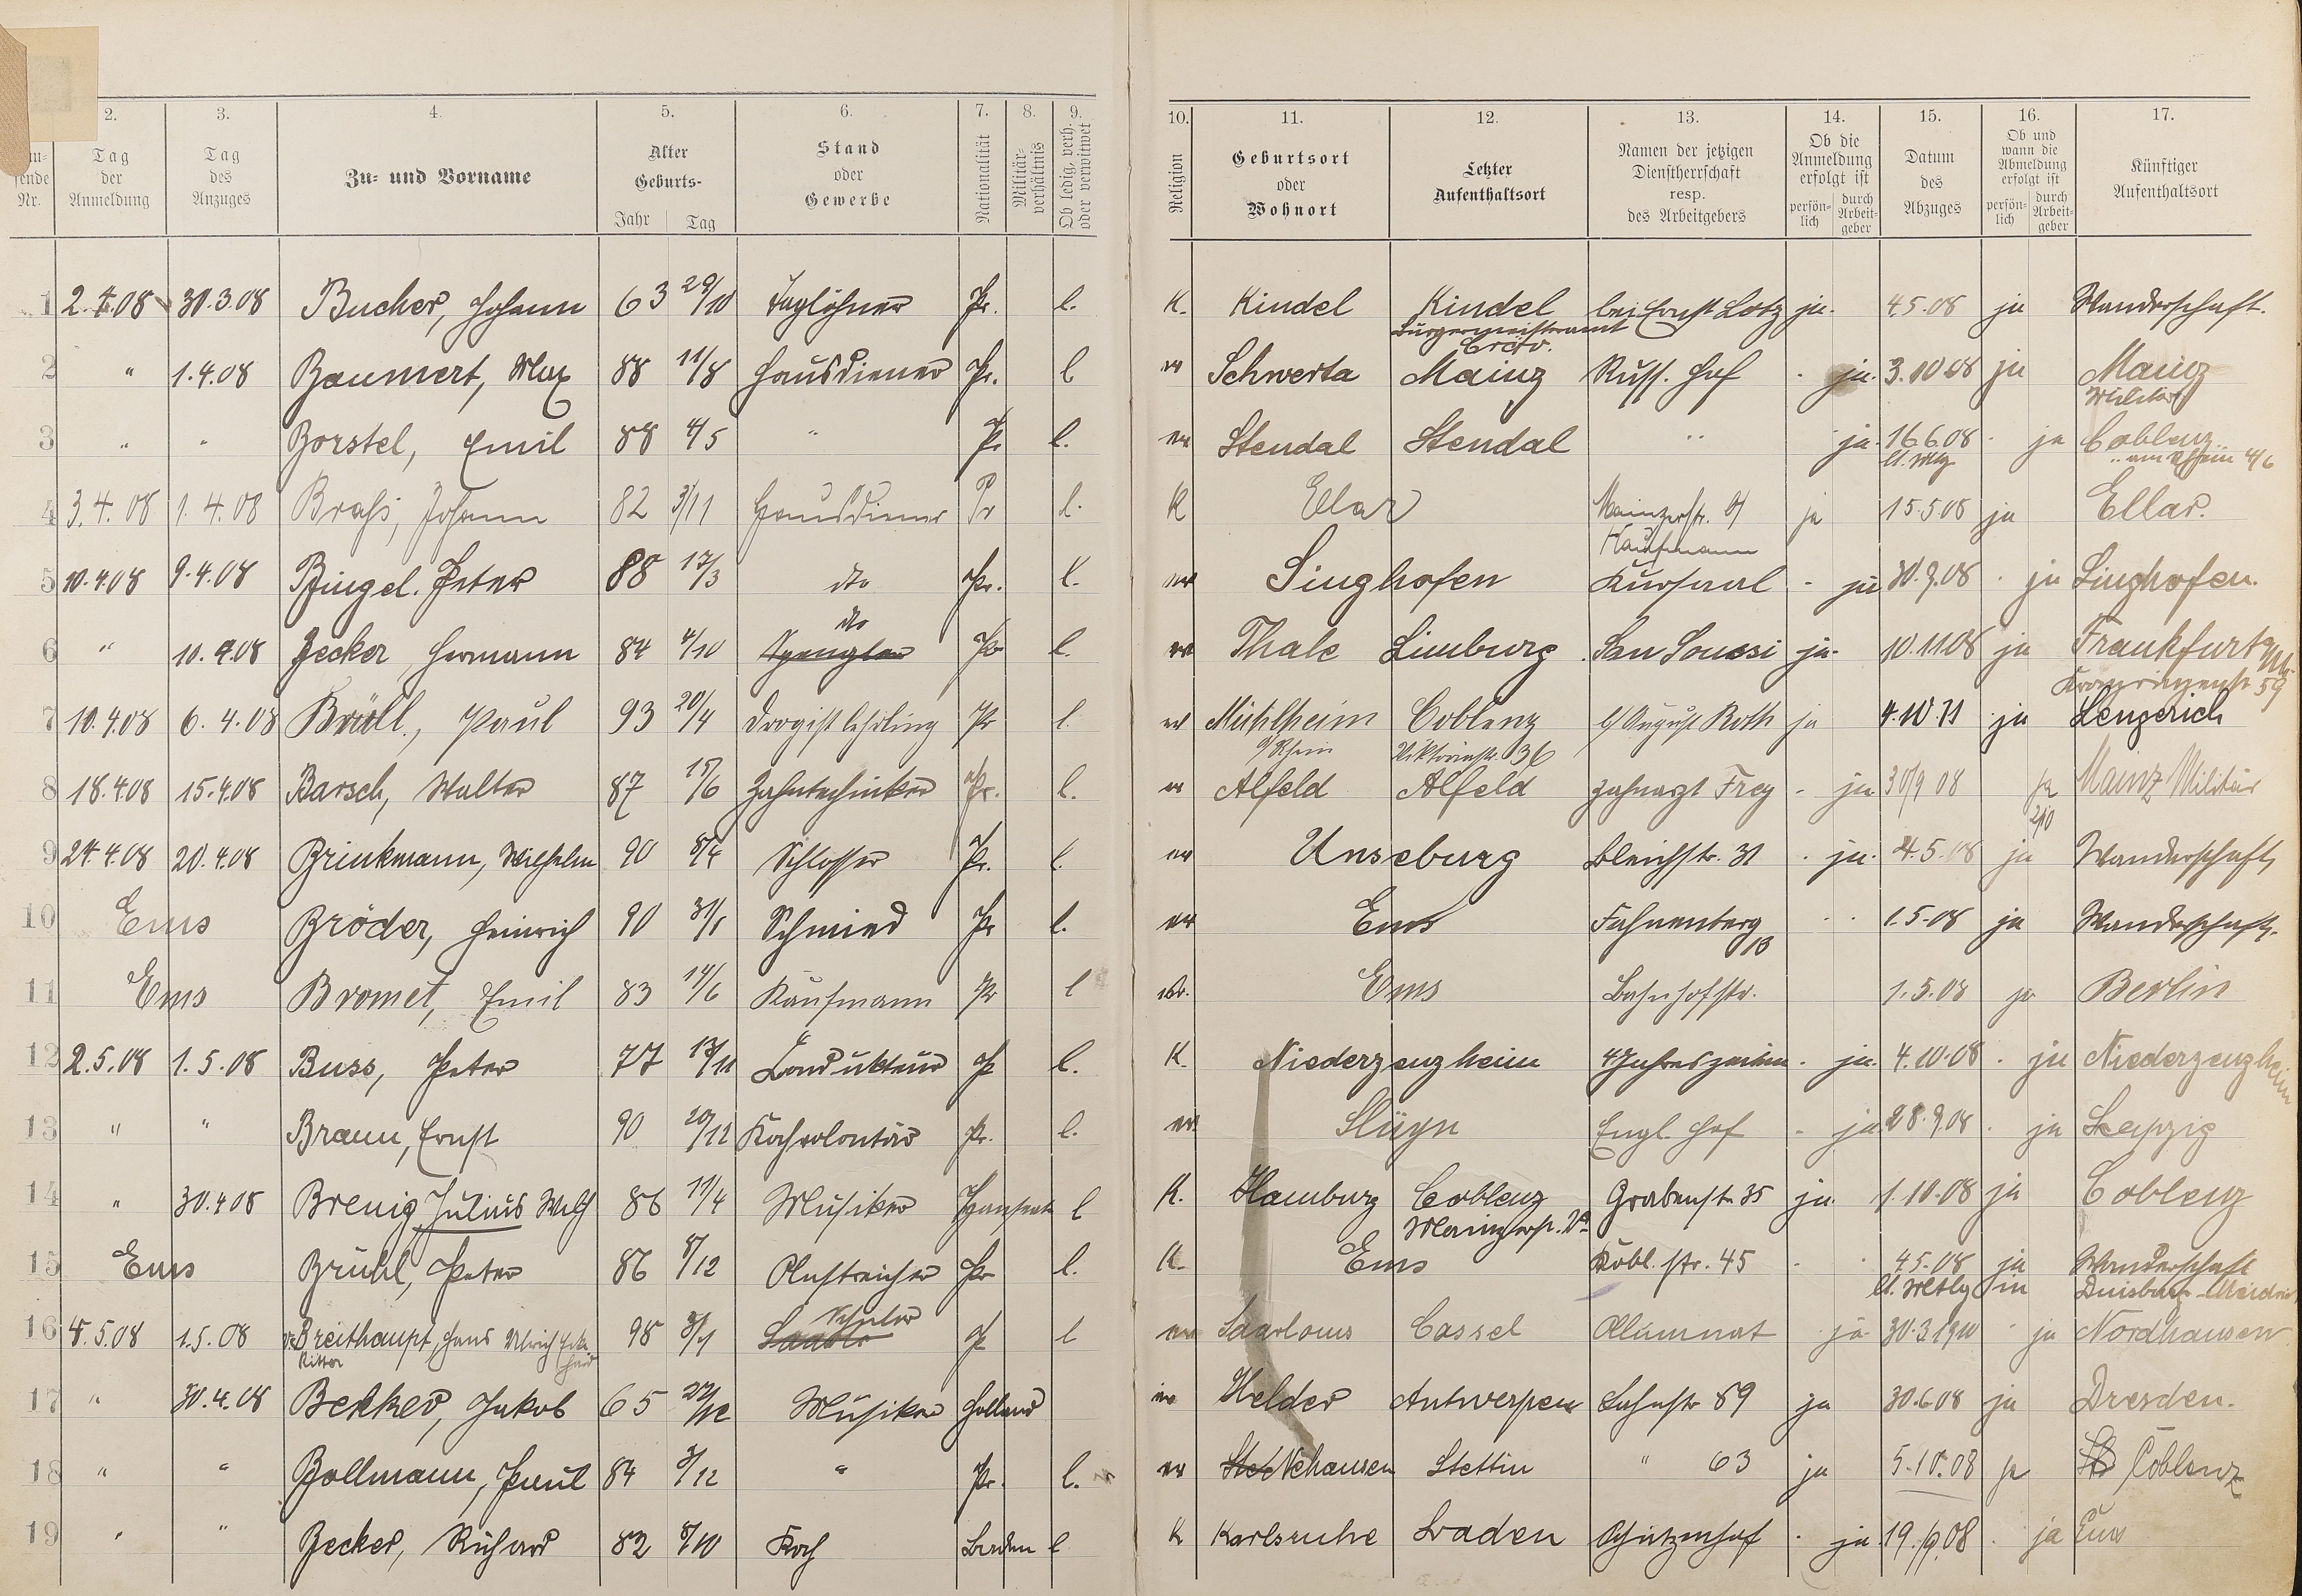 2. 3. 4. 5. 6. 7. 8. 9. 10. 11. 12. 13. 14. 15. 16. 17.
Nr.
Tag der Anmeldung
Tag des Anzuges
Zu- und Vorname
Alter Geburts- Jahr Tag
Stand oder Gewerbe
Nationalität
Militär-verhältnis
Ob ledig, verh. oder verwitwet
Religion
Geburtsort oder Wohnort
Letzter Aufenthaltsort
Namen der jetzigen Dienstherrschaft resp. des Arbeitgebers
Ob die Anmeldung erfolgt ist persön-lich durch Arbeit-geber
Datum des Abzuges
Ob und wann die Abmeldung erfolgt ist persön-lich durch Arbeit-geber
Künftiger Aufenthaltsort
1 2.4.08 30.3.08 Bucher, Johann 63 29/10 Taglöhner Pr. l. K. Kindel Kindel bei Ernst Lotz ja. 4.5.08 ja Wanderschaft.
Bürgermeisteramt
Cröv.
2 " 1.4.08 Baumert, Max 88 11/8 Hausdiener Pr. l ev Schwerta Mainz Russ. Hof - ja. 3.10.08 ja Mainz
Militär
3 " " Borstel, Emil 88 4/5 " Pr l. ev Stendal Stendal " ja. 16.6.08 - ja Coblenz
4 3.4.08 1.4.08 Johann 82 3/11 Hausdiener Pr l. K Ellar Mainzerstr. ja 15.5.08 ja Ellar.
Kaufmann
5 10.4.08 9.4.08 Bingel. Peter 88 17/3 dto Pr. l. ev Singhofen Kursaal - ja 30.9.08 - ja Singhofen.
dto
6 " 10.4.08 Becker Hermann 84 4/10 Spengler Pr l. ev Thale Limburg San Soussi ja- 10.11.08 ja Frankfurt a/M.
Kronprinzenstr 59
7 10.4.08 6.4.08 Brüll, Paul 93 20/4 Drogistlehrling Pr l. ev Mühlheim Coblenz b/ August Roth ja 4.10.11 ja Lengerich
a/Rhein Viktoriastr. 36
8 18.4.08 15.4.08 Barsch, Walter 87 15/6 Zahntechniker Pr. l. ev Alfeld Alfeld Zahnarzt Frey - ja 30/9 08 ja Mainz Militär
2/10
9 24.4.08 20.4.08 Brinkmann, Wilhelm 90 8/4 Schlosser Pr. l. ev Unseburg Bleichstr. 31 - ja. 4.5.08 ja Wanderschaft
10 Ems Bröder, Heinrich 90 31/1 Schmied Pr l. ev Ems Fahnenberg - - 1.5.08 ja Wanderschaft.
13
11 Ems Bromet, Emil 83 14/6 Kaufmann Pr l Ems Bahnhofstr. 1.5.08 ja Berlin
12 2.5.08 1.5.08 Buss, Peter 77 Kondukteur Pr l. K. Niederzeuzheim 4 Jahreszeiten - ja. 4.10.08 - ja Niederzeuzheim
13 " " Braun, Ernst 90 20/12 Kochvolontär Pr. l. ev. Engl. Hof - ja 28.9.08 - ja Leipzig
14 " 30.4.08 Brenig, Julius Wilh 86 11/4 Musiker l K. Hamburg Coblenz Grabenstr. 35 ja 1.10.08 ja Coblenz
15 Ems Brühl, Peter 86 8/12 Anstreicher Pr l. K. Ems Kobl. str. 45 - - 4.5.08 ja Wanderschaft
Duisburg-Meiderich
Schüler
16 4.5.08 1.5.08 v. Breithaupt, Hans Ulrich 98 Pr l ev Saarlouis Cassel Alumnat ja 30.3.1910 - ja Nordhausen
Ritter
17 " 30.4.08 Bekker, Jakob 65 22/12 Musiker Holland ev Helder Antwerpen Lahnstr 89 ja 30.6.08 ja Dresden.
18 " " Bollmann, Paul 84 3/12 " Pr. l. ev Nehausen Stettin " 63 ja 5.10.08 ja Coblenz
19 " " Becker, Richard 82 8/10 Koch Baden l K Karlsruhe Baden Schützenhof - ja. 19./9.08 - ja Ems